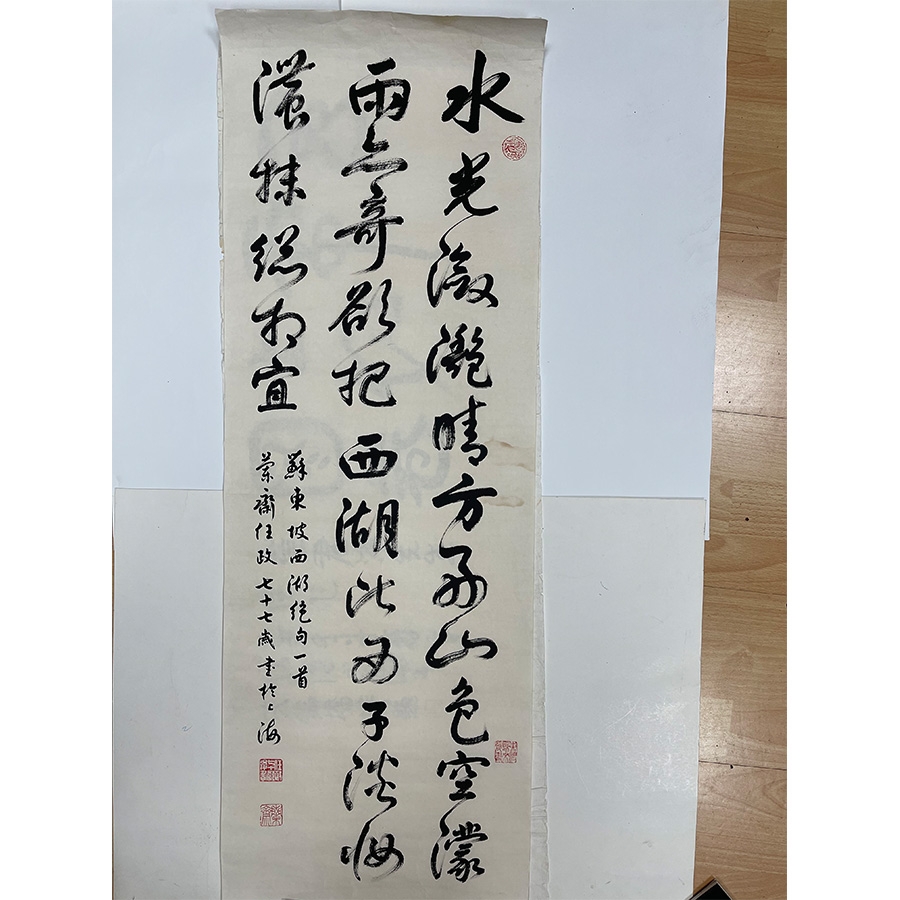 水光瀲灩晴方好山色空濛
雨亦奇欲把西湖比西子淡妝
濃抹總相宜
蘇東坡西湖絕句一首
蘭齋任政七十七歲書於上海